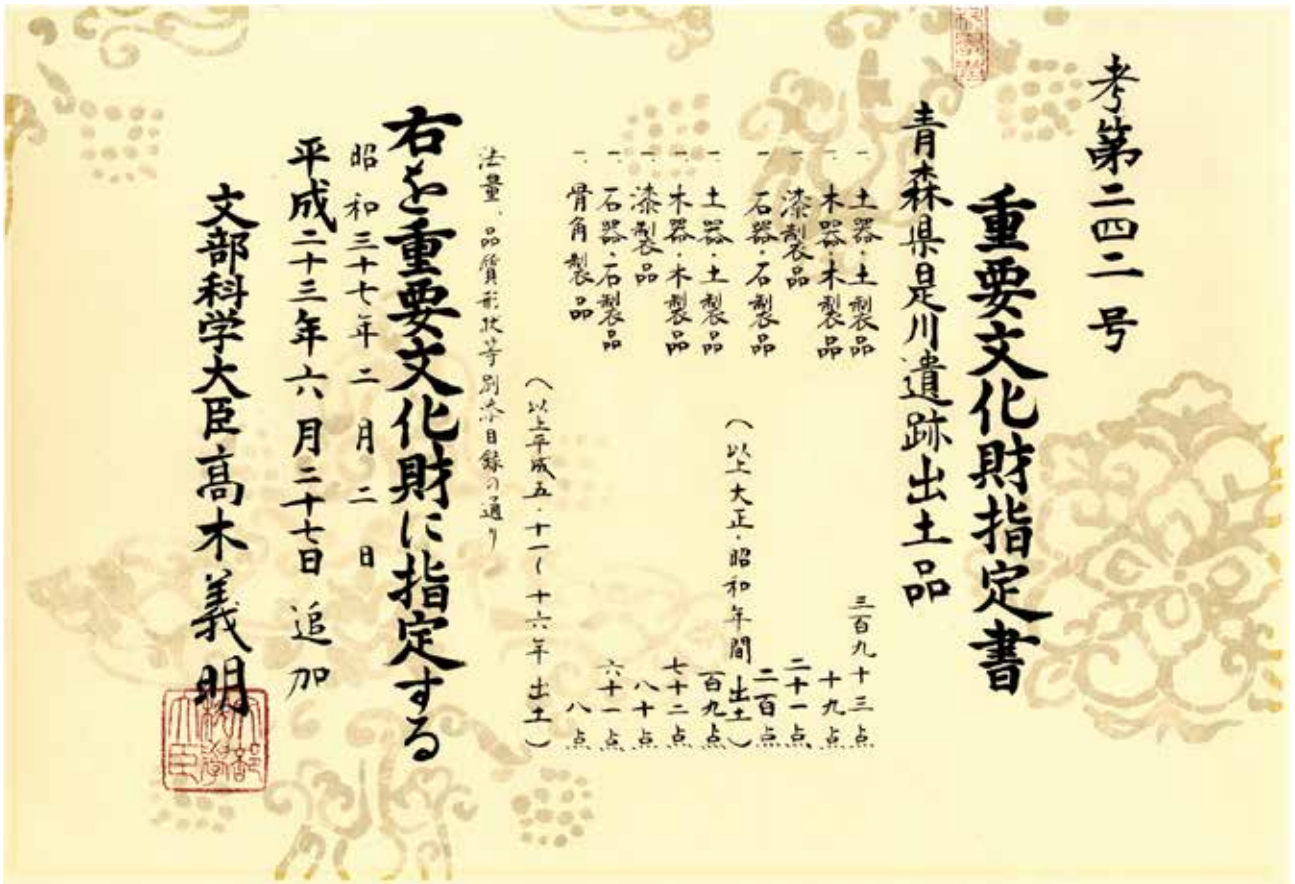 考第二四二号
重要文化財指定書
青森県是川遺跡出土品
一、土器・土製品 三百九十三点
一、木器・木製品 十九点
一、漆製品 二十一点
一、石器・石製品 二百点
(以上大正・昭和年間出土)
一、土器・土製品 百九点
一、木器・木製品 七十二点
一、漆製品 八十点
一、石器・石製品 六十一点
一、骨角製品 八点
(以上平成五・十一〜十六年出土)
法量、品質形状等別添目録の通り
右を重要文化財に指定する
昭和三十七年二月二日
平成二十三年六月二十七日 追加
文部科学大臣髙木義明
文部科学大臣